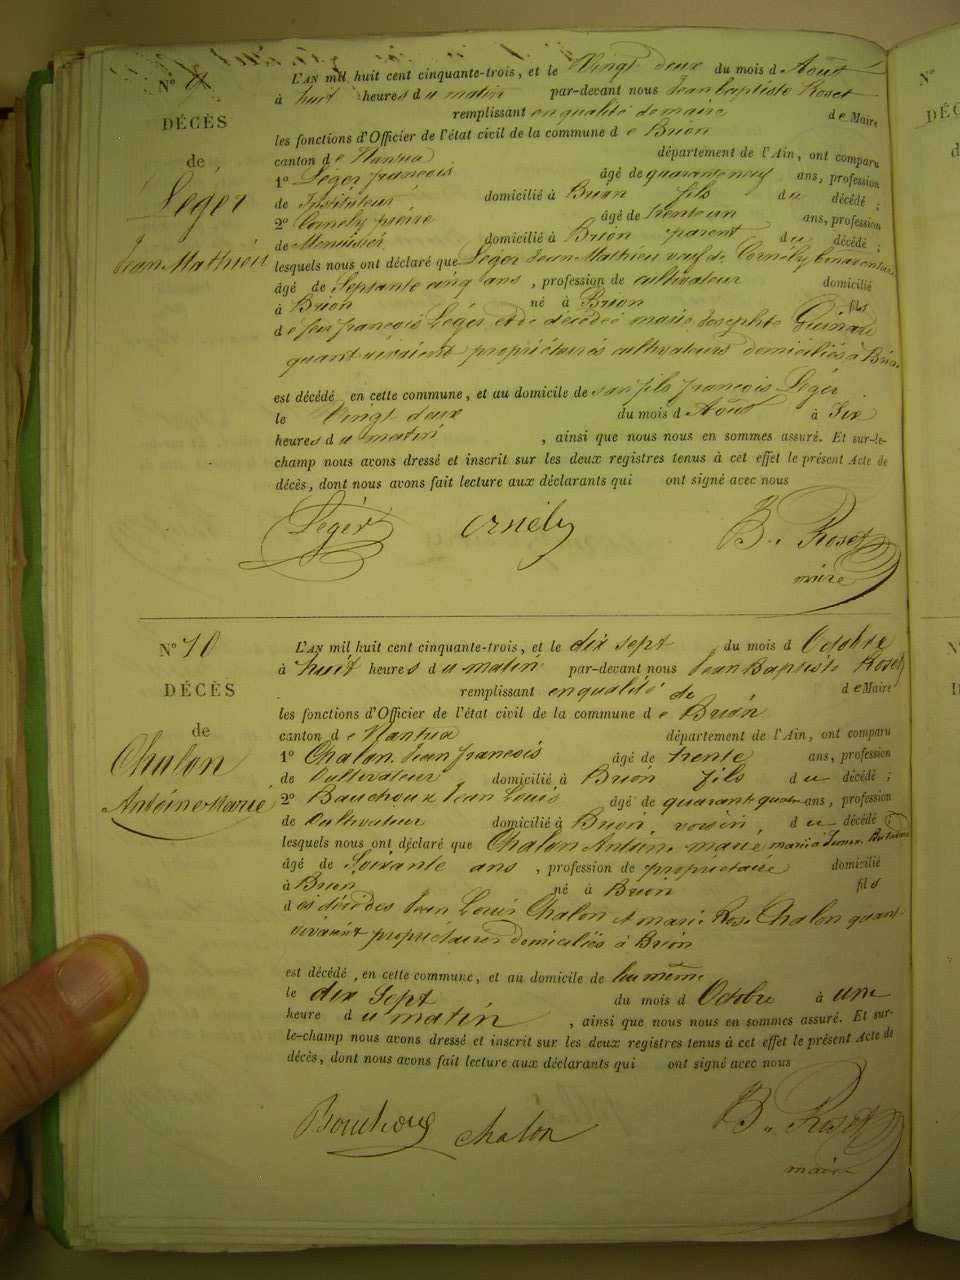 N° 9
DÉCÈS
de
Léger
Jean Mathieu
L'AN mil huit cent cinquante-trois, et le Vingt deux du mois d Août
à huit heures du matin par-devant nous Jean baptiste Roset
remplissant en qualité de maire de Maire
les fonctions d'Officier de l'état civil de la commune de Brion
canton de Nantua département de l'Ain, ont comparu
1° Léger françois âgé de quarante neuf ans, profession
de Instituteur domicilié à Brion fils du décédé ;
2° Cornély pierre âgé de trente un ans, profession
de Menuisier domicilié à Brion parent du décédé ;
lesquels nous ont déclaré que Léger Jean Mathieu veuf de Cornély bonaventure
âgé de Septante cinq ans, profession de cultivateur domicilié
à Brion né à Brion fils
de feu françois Léger et de décédée marie Josephte
quant vivaient propriétaires cultivateurs domiciliés à Brion
est décédé en cette commune, et au domicile de son fils françois Léger
le Vingt deux du mois d Août à Six
heures du matin, ainsi que nous nous en sommes assuré. Et sur-le-
champ nous avons dressé et inscrit sur les deux registres tenus à cet effet le présent Acte de
décès, dont nous avons fait lecture aux déclarants qui ont signé avec nous
Léger Cornély B. Roset
maire
N° 10
DÉCÈS
de
Chalon
Antoine Marie
L'AN mil huit cent cinquante-trois, et le dix sept du mois d Octobre
à huit heures du matin par-devant nous Jean Baptiste Roset
remplissant en qualité de de Maire
les fonctions d'Officier de l'état civil de la commune de Brion
canton de Nantua département de l'Ain, ont comparu
1° Chalon Jean françois âgé de trente ans, profession
de Cultivateur domicilié à Brion fils du décédé ;
2° Bauchoux Jean Louis âgé de quarante quatre ans, profession
de Cultivateur domicilié à Brion, voisin, du décédé ;
lesquels nous ont déclaré que Chalon Antoine marie marié à
âgé de Soixante ans, profession de propriétaire domicilié
à Brion né à Brion fils
des décédés Jean Louis Chalon et marie Rose Chalon quant
vivaient propriétaires domiciliés à Brion
est décédé, en cette commune, et au domicile de lui même
le dix Sept du mois d Octobre à une
heure du matin, ainsi que nous nous en sommes assuré. Et sur-
le-champ nous avons dressé et inscrit sur les deux registres tenus à cet effet le présent Acte de
décès, dont nous avons fait lecture aux déclarants qui ont signé avec nous
Bouchoux Chalon B. Roset
maire